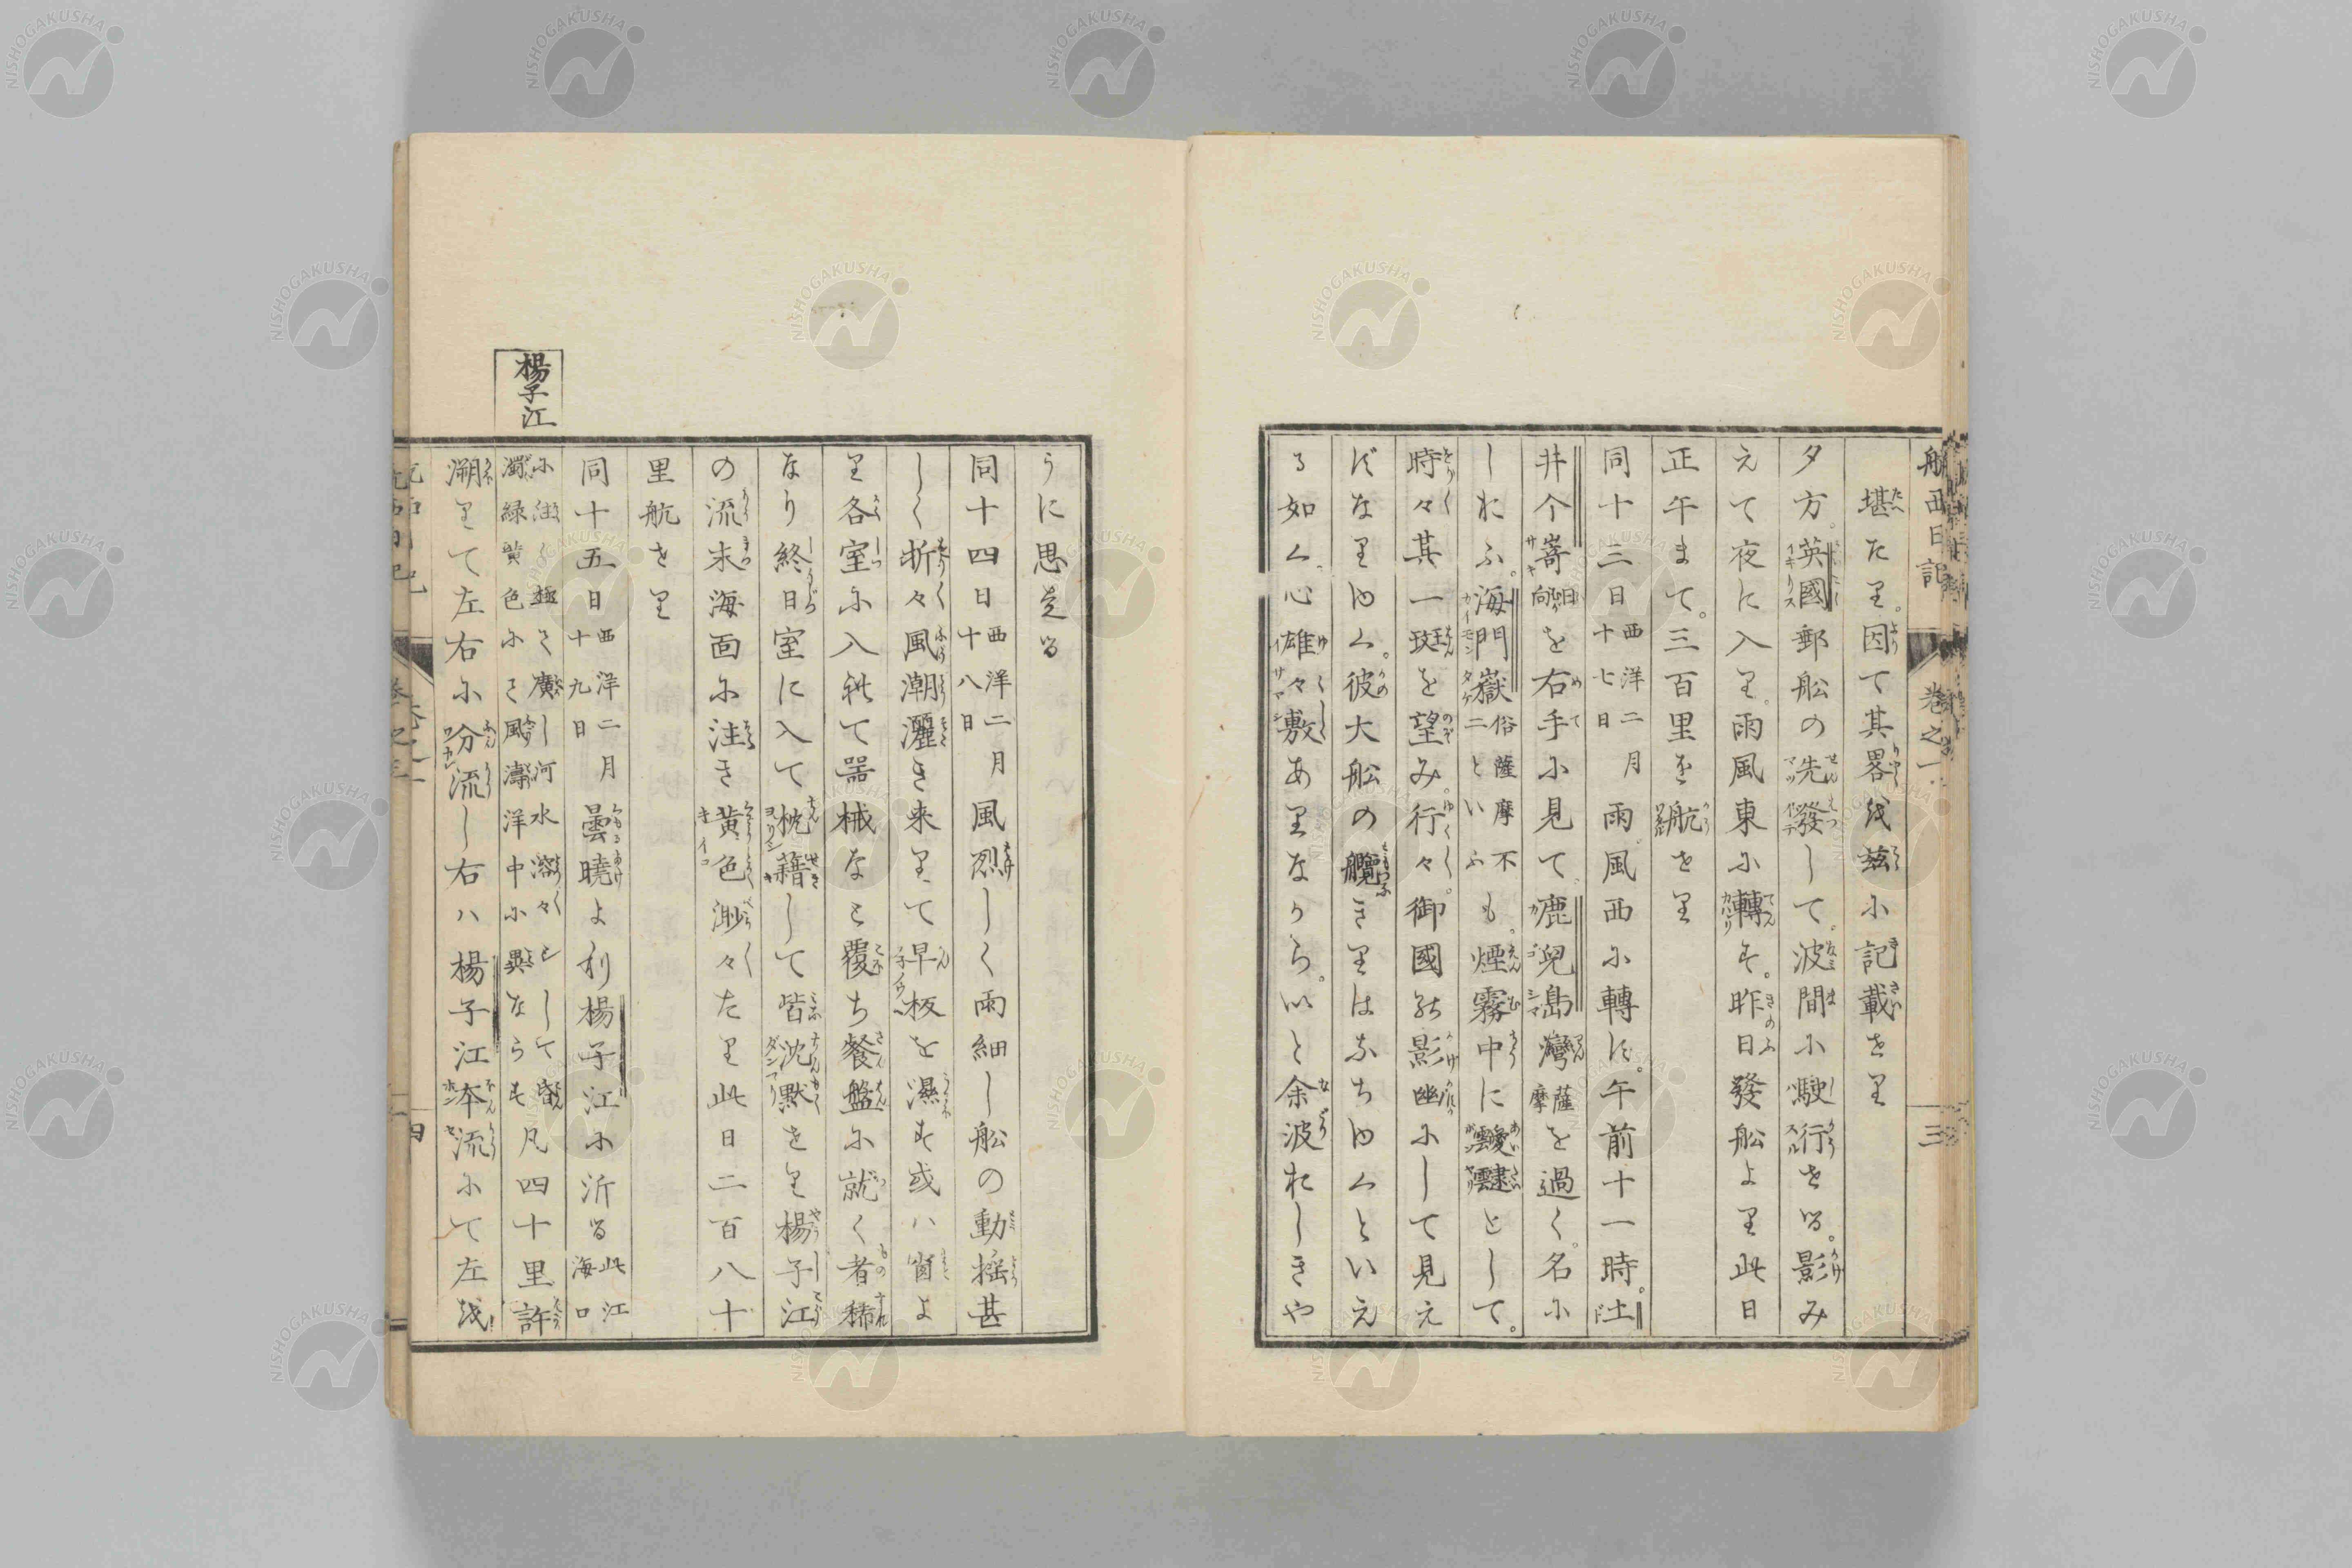 航西日記 巻之一 三
堪たり。因て其畧を茲に記載せり
夕方。英國郵船の先發して。波間に駛行せる。影み
えて夜に入り。雨風東に轉す。昨日發船より此日
正午まて。三百里を航せり
同十三日西洋二月十七日雨。風西に轉す。午前十一時。土
井个嵜日向を右手に見て。鹿兒島灣薩摩を過く。名に
しおふ。海門嶽俗薩摩不二といふも。煙霧中に靉靆として。
時々其一斑を望み。行々。御國の影幽にして見え
ずなりゆく。彼大船の艫きりはなちゆくといえ
る如く。心雄々敷ありなから。いと余波おしきや
うに思はる
同十四日西洋二月十八日風烈しく雨細し船の動揺甚
しく折々風潮灑き来りて早板を濕す或ハ窗よ
り各室に入れて器械なと覆ち餐盤に就く者稀
なり終日室に入て枕藉して皆沈黙せり楊子江
の流末海面に注き黄色渺々たり此日二百八十
里航せり
楊子江
同十五日西洋二月十九日曇暁より楊子江に沂る此江海口
に注く極て廣し河水溶々として昏濁緑黄色にて風濤洋中に異ならす凡四十里許
溯りて左右に分流し右ハ楊子江本流にて左を
四